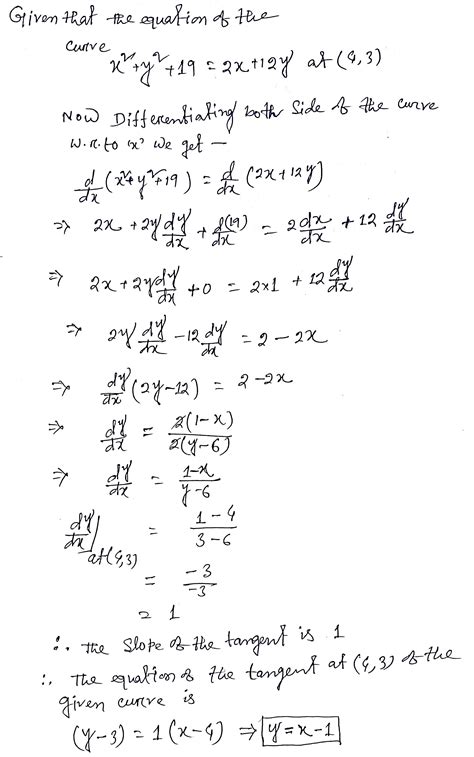 Given that the equation of the
curve
x²+y²+19 = 2x+12y at (4,3)
Now Differentiating both side of the curve
w.r.to 'x' we get —
d/dx (x²+y²+19) = d/dx (2x+12y)
⇒ 2x + 2y dy/dx + d(19)/dx = 2 dx/dx + 12 dy/dx
⇒ 2x + 2y dy/dx + 0 = 2×1 + 12 dy/dx
⇒ 2y dy/dx − 12 dy/dx = 2 − 2x
⇒ dy/dx (2y−12) = 2 − 2x
⇒ dy/dx = 2(1−x)/2(y−6)
⇒ dy/dx = 1−x/y−6
dy/dx| at (4,3) = 1−4/3−6
= −3/−3
= 1
∴ The slope of the tangent is 1
∴ The equation of the tangent at (4,3) of the
given curve is
(y−3) = 1(x−4) ⇒ y = x−1